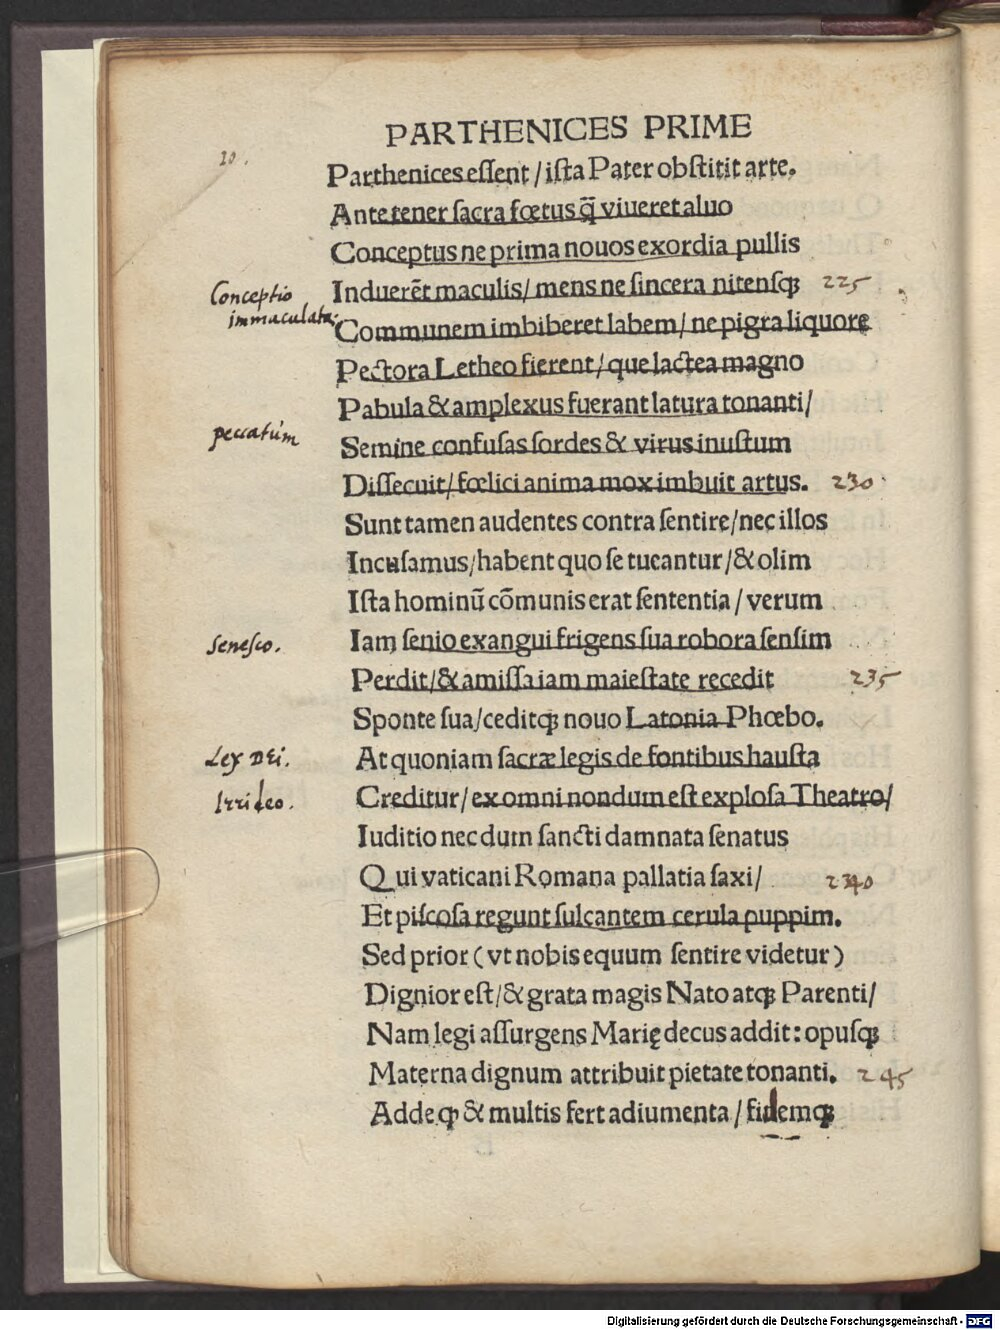 PARTHENICES PRIME
10.
Parthenices eſſent / iſta Pater obſtitit arte.
Ante tener ſacra fœtus q̃ viueret aluo
Conceptus ne prima nouos exordia pullis
Induerẽt maculis / mens ne ſincera nitenſqꝫ 225
Conceptio immaculata.
Communem imbiberet labem / ne pigra liquore
Pectora Letheo fierent / que lactea magno
Pabula & amplexus fuerant latura tonanti /
peccatum
Semine confuſas ſordes & virus inuſtum
Diſſecuit / fœlici anima mox imbuit artus. 230
Sunt tamen audentes contra ſentire / nec illos
Incuſamus / habent quo ſe tueantur / & olim
Iſta hominũ cõmunis erat ſententia / verum
Seneſco. Iam ſenio exangui frigens ſua robora ſenſim
Perdit / & amiſſa iam maieſtate recedit 235
Sponte ſua / ceditqꝫ nouo Latonia Phœbo.
Lex DEi. At quoniam ſacræ legis de fontibus hauſta
Irrideo. Creditur / ex omni nondum eſt exploſa Theatro /
Iuditio nec dum ſancti damnata ſenatus
Qui vaticani Romana pallatia ſaxi / 240
Et piſcoſa regunt ſulcantem cerula puppim.
Sed prior ( vt nobis equum ſentire videtur )
Dignior eſt / & grata magis Nato atqꝫ Parenti /
Nam legi aſſurgens Marię decus addit : opuſqꝫ
Materna dignum attribuit pietate tonanti. 245
Adde ꝙ & multis fert adiumenta / fidemqꝫ
Digitalisierung gefördert durch die Deutsche Forschungsgemeinschaft - DFG